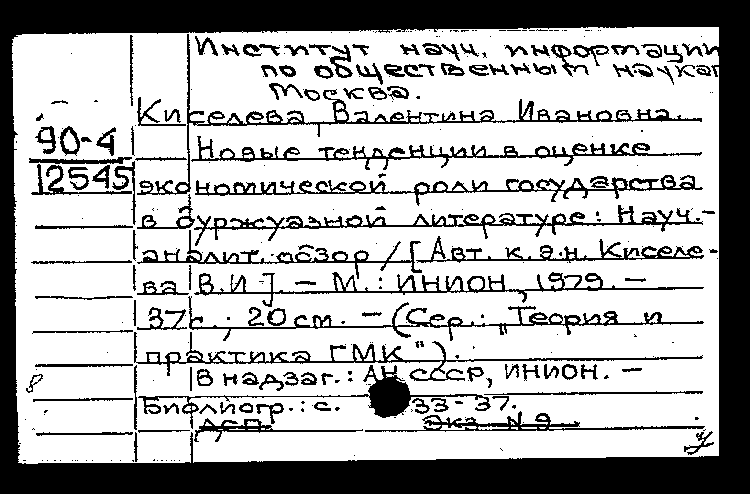 Институт науч. информации
по общественным наукам
Москва.
Киселева, Валентина Ивановна.
90-4
12545
Новые тенденции в оценке
экономической роли государства
в буржуазной литературе: Науч.-
аналит. обзор / [Авт. к.э.н. Киселе-
ва В.И]. — М.: ИНИОН, 1979. —
37с.; 20см. — (Сер.: „Теория и
практика ГМК").
В надзаг.: АН СССР, ИНИОН. —
8
Библиогр.: с. 33-37.
ДСП. Экз N 9